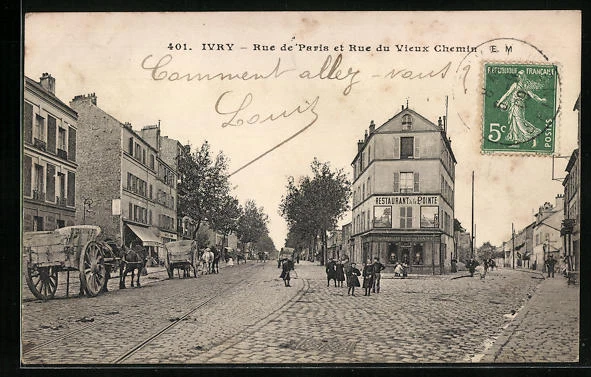 401. IVRY – Rue de Paris et Rue du Vieux Chemin E. M
Comment allez-vous ?
Louis
REPUBLIQUE FRANÇAISE
POSTES
5c
RESTAURANT de la POINTE